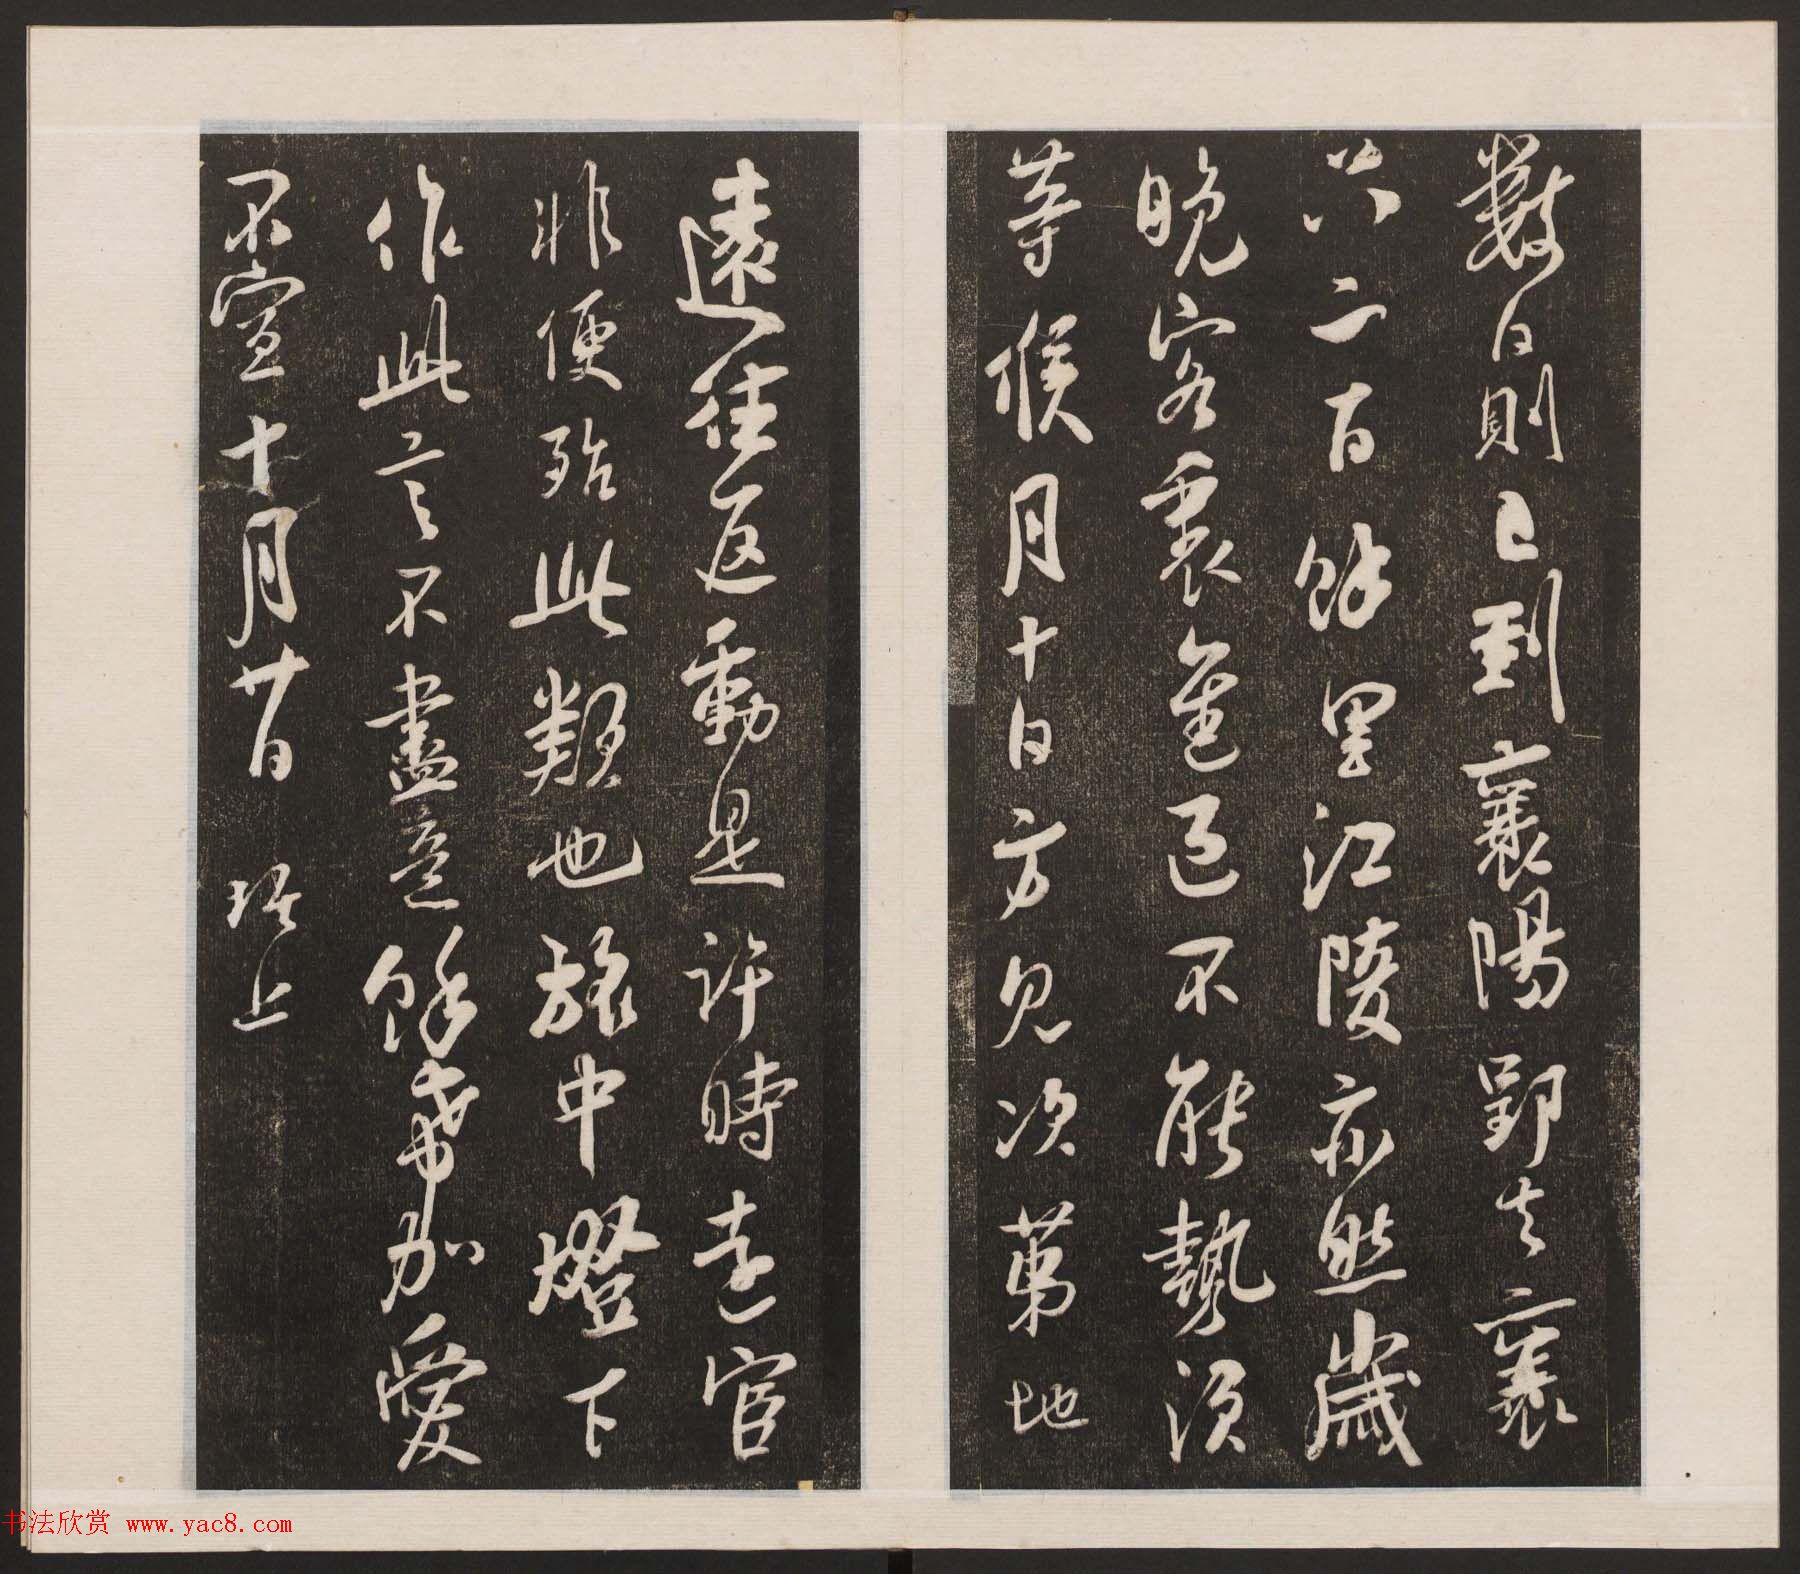 數日則已到襄陽郢去襄
只二百餘里江陵亦然歲
晚客裏疑不能熱須
等候月十日方見次第地
遠往返動是許時遠宦
非便殆此類也旅中燈下
作此言不盡意餘希加愛
不宣十月廿日 上
书法欣赏 www.yac8.com